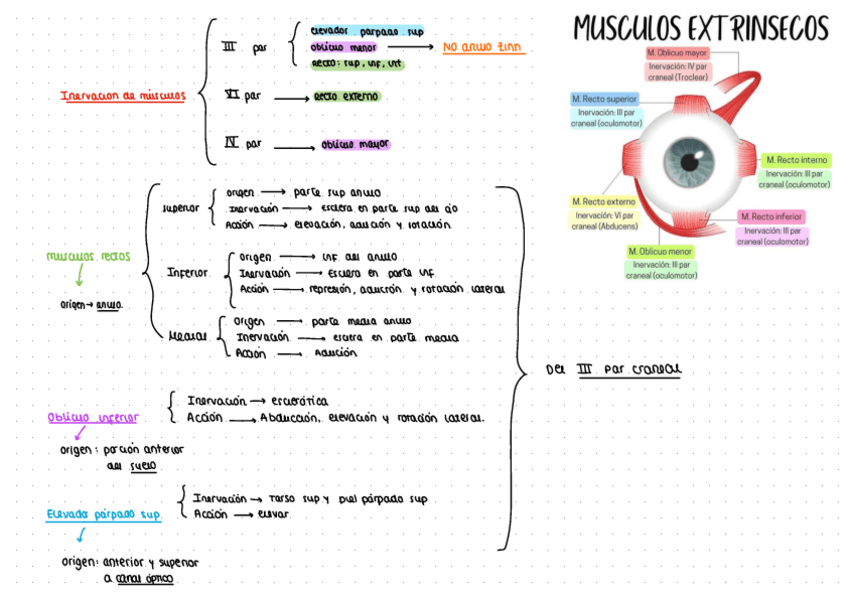 MUSCULOS EXTRINSECOS
Inervacion de músculos
III par
elevador parpado sup
oblicuo menor → NO anillo zinn
Recto: sup, inf, int
VI par → Recto externo
IV par → oblicuo mayor
M. Oblicuo mayor
Inervación: IV par
craneal (Troclear)
M. Recto superior
Inervación: III par
craneal (oculomotor)
M. Recto interno
Inervación: III par
craneal (oculomotor)
M. Recto externo
Inervación: VI par
craneal (Abducens)
M. Recto inferior
Inervación: III par
craneal (oculomotor)
M. Oblicuo menor
Inervación: III par
craneal (oculomotor)
musculos rectos
origen → anillo
superior
origen → parte sup anillo
Inervación → esclera en parte sup del ojo
Acción → elevación, aducción y rotación
Inferior
origen → inf del anillo
Inervación → esclera en parte inf
Acción → represión, aducción y rotación lateral
Medial
Origen → parte media anillo
Inervación → esclera en parte media
Acción → Adución
Oblicuo inferior
Inervación → esclerótica
Acción → Abducción, elevación y rotación lateral.
origen: porción anterior
del suelo
Elevador párpado sup.
Inervación → Tarso sup y piel párpado sup
Acción → elevar
origen: anterior y superior
a canal óptico
Del III par craneal